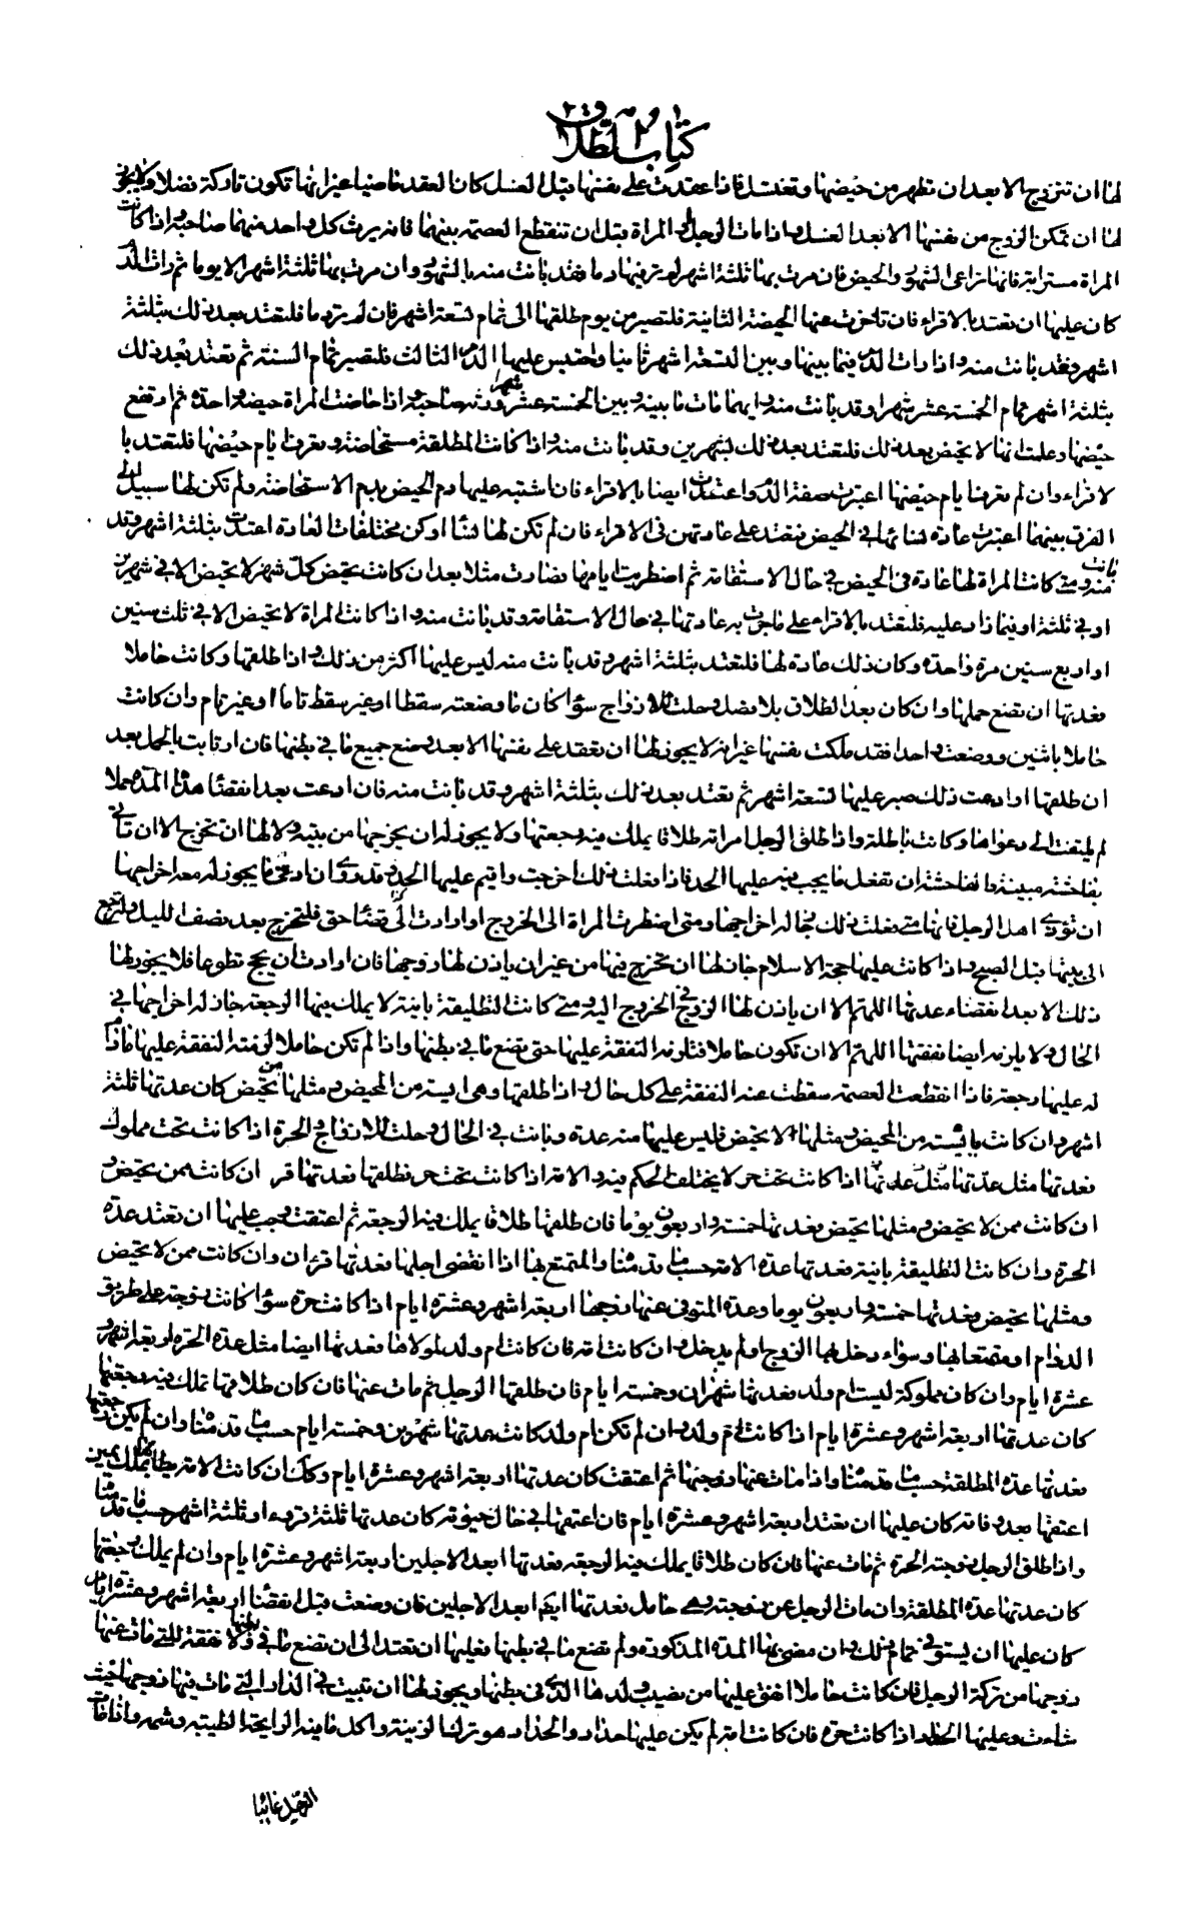 كتاب الطلاق
لها ان تتزوج الا بعد ان تطهر من حيضها وتغتسل فاذا عقدت على نفسها قبل الغسل كان العقد ماضيا غير انها تكون تاركة فضلا ولا يجوز
لها ان تمكن الزوج من نفسها الا بعد الغسل واذا مات الرجل او المراة قبل ان تنقطع العصمة بينهما فانه يرث كل واحد منهما صاحبه واذا كانت
المراة مسترابة فانها تراعى الشهور والحيض فان مرت بها ثلثة اشهر لم تر فيها دما فقد بانت منه بالشهور وان مرت بها ثلثة اشهر الا يوما ثم رات الدم
كان عليها ان تعتد بالاقراء فان تاخرت عنها الحيضة الثانية فلتصبر من يوم طلقها الى تمام تسعة اشهر فان لم تر دما فلتعتد بعد ذلك بثلثة
اشهر وقد بانت منه واذا رات الدم فيما بينها وبين التسعة اشهر ثانيا واحتبس عليها الدم الثالث فلتصبر تمام السنة ثم تعتد بعد ذلك
بثلثة اشهر تمام الخمسة عشر شهرا وقد بانت منه وايهما مات ما بينه وبين الخمسة عشر شهرا ورثه صاحبه واذا حاضت المراة حيضة واحدة ثم ارتفع
حيضها وعلمت انها لا تحيض بعد ذلك فلتعتد بعد ذلك بشهرين وقد بانت منه واذا كانت المطلقة مستحاضة وتعرف ايام حيضها فلتعتد با
لاقراء وان لم تعرف ايام حيضها اعتبرت صفة الدم واعتدت ايضا بالاقراء فان اشتبه عليها دم الحيض بدم الاستحاضة ولم تكن لها سبيل الى
الفرق بينهما اعتبرت عادة نسائها في الحيض فتعتد على عادتهن فى الاقراء فان لم تكن لها نساء او كن مختلفات العادة اعتدت بثلثة اشهر وقد بانت
منه ومتى كانت المراة لها عادة فى الحيض فى حال الاستقامة ثم اضطربت ايامها فصارت مثلا بعد ان كانت تحيض كل شهر لا تحيض الا في شهرين
او في ثلثة او فيما زاد عليه فلتعتد بالاقراء على ما جرت به عادتها في حال الاستقامة وقد بانت منه واذا كانت المراة لا تحيض الا في ثلث سنين
او اربع سنين مرة واحدة وكان ذلك عادة لها فلتعتد بثلثة اشهر وقد بانت منه ليس عليها اكثر من ذلك واذا طلقها وكانت حاملا
فعدتها ان تضع حملها وان كان بعد الطلاق بلا فصل وحلت للازواج سواء كان ما وضعته سقطا او غير سقط تاما او غير تام وان كانت
حاملا باثنين ووضعت واحدا فقد ملكت نفسها غير انه لا يجوز لها ان تعقد على نفسها الا بعد وضع جميع ما في بطنها فان ارتابت بالحمل بعد
ان طلقها او ادعت ذلك صبر عليها تسعة اشهر ثم تعتد بعد ذلك بثلثة اشهر وقد بانت منه فان ادعت بعد انقضاء هذه المدة حملا
لم يلتفت الى دعواها وكانت باطلة واذا طلق الرجل امراته طلاقا يملك فيه رجعتها ولا يجوز له ان يخرجها من بيته ولا لها ان تخرج الا ان تاتي
بفاحشة مبينة والفاحشة ان تفعل ما يجب فيه عليها الحد فاذا فعلت ذلك اخرجت واقيم عليها الحد وقد روى ان ادنى ما يجوز له معه اخراجها
ان تؤذى اهل الرجل فانها متى فعلت ذلك جاز له اخراجها ومتى اضطرت المراة الى الخروج او ارادت الى قضاء حق فلتخرج بعد نصف الليل وترجع
الى بيتها قبل الصبح واذا كانت عليها حجة الاسلام جاز لها ان تخرج فيها من غير ان ياذن لها زوجها فان ارادت ان تحج تطوعا فلا يجوز لها
ذلك الا بعد انقضاء عدتها اللهم الا ان ياذن لها الزوج في الخروج اليه ومتى كانت التطليقة باينة لا يملك فيها الرجعة جاز له اخراجها في
الحال ولا يلزمه ايضا نفقتها اللهم الا ان تكون حاملا فتلزمه النفقة عليها حتى تضع ما في بطنها واذا لم تكن حاملا لزمته النفقة عليها ما دام
له عليها رجعة فاذا انقطعت العصمة سقطت عنه النفقة على كل حال واذا طلقها وهى ايسة من المحيض ومثلها من تحيض كان عدتها ثلثة
اشهر وان كانت ايسة من المحيض ومثلها لا تحيض فليس عليها منه عدة وبانت في الحال وحلت للازواج والحرة اذا كانت تحت مملوك
فعدتها مثل عدتها اذا كانت تحت حر لا يختلف الحكم فيه والامة اذا كانت تحت حر فطلقها فعدتها قرءان كانت ممن تحيض و
ان كانت ممن لا تحيض ومثلها تحيض فعدتها خمسة واربعون يوما فان طلقها طلاقا يملك فيه الرجعة ثم اعتقت وجب عليها ان تعتد عدة
الحرة وان كانت التطليقة باينة فعدتها عدة الامة حسب ما قدمنا والمتمتع بها اذا انقضى اجلها فعدتها قرءان وان كانت ممن لا تحيض
ومثلها تحيض فعدتها خمسة واربعون يوما وعدة المتوفى عنها زوجها اربعة اشهر وعشرة ايام اذا كانت حرة سواء كانت زوجة على طريق
الدوام او متمتعا بها وسواء دخل بها الزوج او لم يدخل وان كانت امة فان كانت ام ولد لمولاها فعدتها ايضا مثل عدة الحرة اربعة اشهر و
عشرة ايام وان كان مملوكة ليست ام ولد فعدتها شهران وخمسة ايام فان طلقها الرجل ثم مات عنها فان كان طلاقها تملك فيه رجعتها
كان عدتها اربعة اشهر وعشرة ايام اذا كانت ام ولد وان لم تكن ام ولد كانت عدتها شهرين وخمسة ايام حسب ما قدمنا وان لم يكن رجعتها
فعدتها عدة المطلقة حسب ما قدمنا واذا مات عنها زوجها ثم اعتقت كان عدتها اربعة اشهر وعشرة ايام وكذا ان كانت الامة يطاها بملك يمين
اعتقها بعد وفاته كان عليها ان تعتد اربعة اشهر وعشرة ايام فان اعتقها في حال حيوته كان عدتها ثلثة قروء او ثلثة اشهر حسب ما قدمنا
واذا طلق الرجل زوجته الحرة ثم مات عنها فان كان طلاقا يملك فيه الرجعة فعدتها ابعد الاجلين اربعة اشهر وعشرة ايام وان لم يملك رجعتها
كان عدتها عدة المطلقة وان مات الرجل عن زوجته وهي حامل فعدتها ابعد الاجلين فان وضعت قبل انقضاء اربعة اشهر وعشرة ايام
كان عليها ان يستوفي تمام ذلك وان مضى بها المدة المذكورة ولم تضع ما في بطنها فعليها ان تعتد الى ان تضع ما في بطنها ولا نفقة للتي مات عنها
زوجها من تركة الرجل فان كانت حاملا انفق عليها من نصيب ولدها الذى فى بطنها ويجوز لها ان تبيت في الدار التي مات فيها زوجها حيث
شاءت وعليها الحداد اذا كانت حرة فان كانت امة لم يكن عليها حداد والحداد هو ترك الزينة واكل ما فيه الرايحة الطيبة وشمه واذا مات
الرجل غائبا